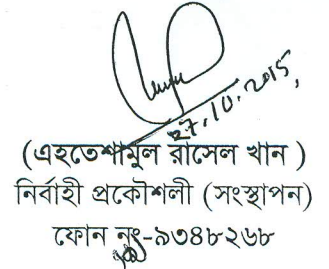 27.10.2015,
(এহতেশামুল রাসেল খান )
নির্বাহী প্রকৌশলী (সংস্থাপন)
ফোন নং-৯৩৪৮২৬৮